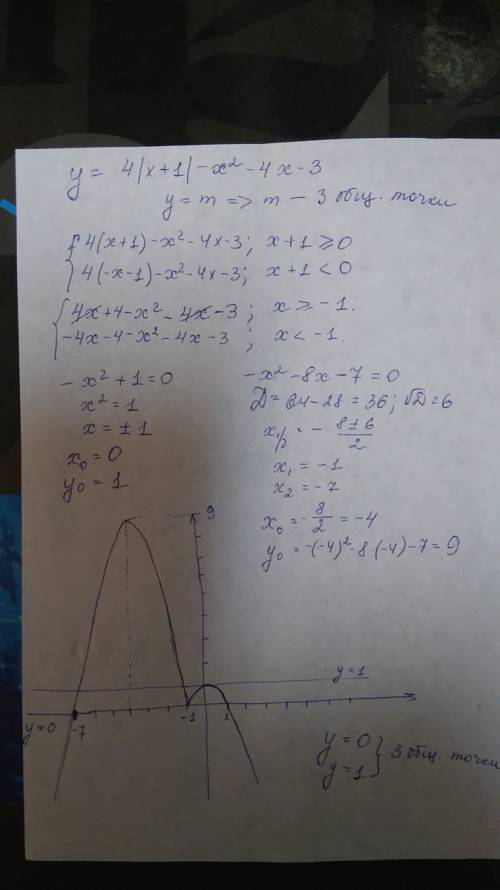 y = 4|x+1|-x²-4x-3
y = m => m - 3 общ. точки
{ 4(x+1)-x²-4x-3; x+1 ≥ 0
4(-x-1)-x²-4x-3; x+1 < 0
{ 4x+4-x²-4x-3; x ≥ -1.
-4x-4-x²-4x-3; x < -1.
-x²+1=0
x²=1
x=±1
x₀=0
y₀=1
-x²-8x-7=0
D=64-28=36; √D=6
x₁/₂ = - (8±6)/2
x₁=-1
x₂=-7
x₀=-8/2=-4
y₀=-(-4)²-8(-4)-7=9
9
y=1
y=0
-7
-1
1
y=0
y=1 } 3 общ. точки